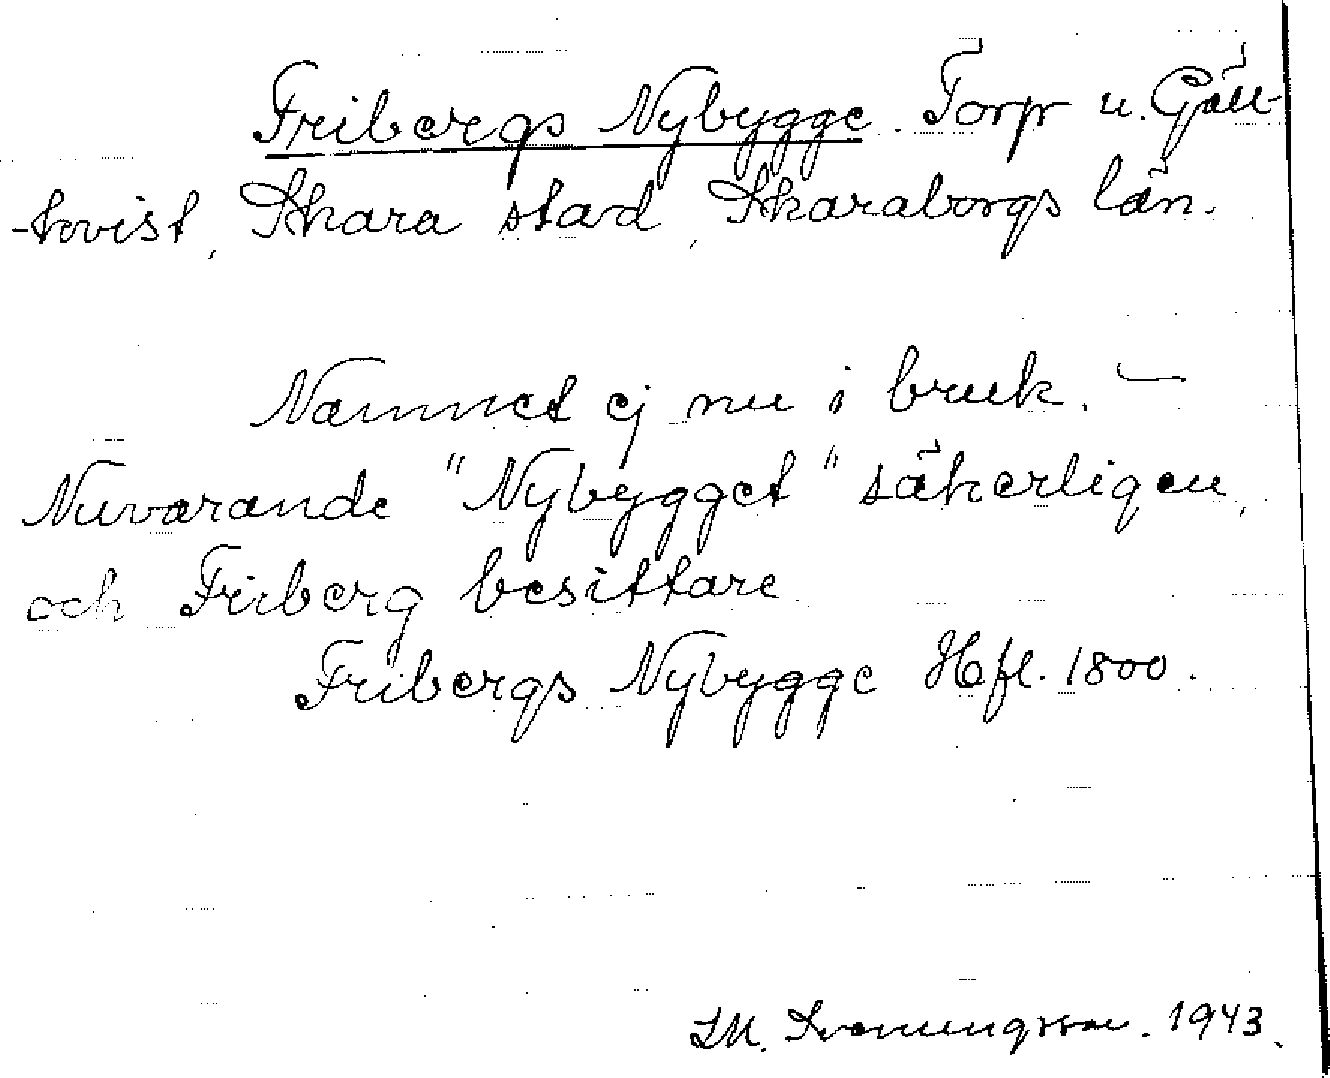 Fribergs Nybygge. Torp u. Gäll-
-kvist, Skara stad, Skaraborgs län.
Namnet ej nu i bruk. –
Nuvarande "Nybygget" säkerligen,
och Friberg besittare
Fribergs Nybygge Hfl. 1800.
1943.